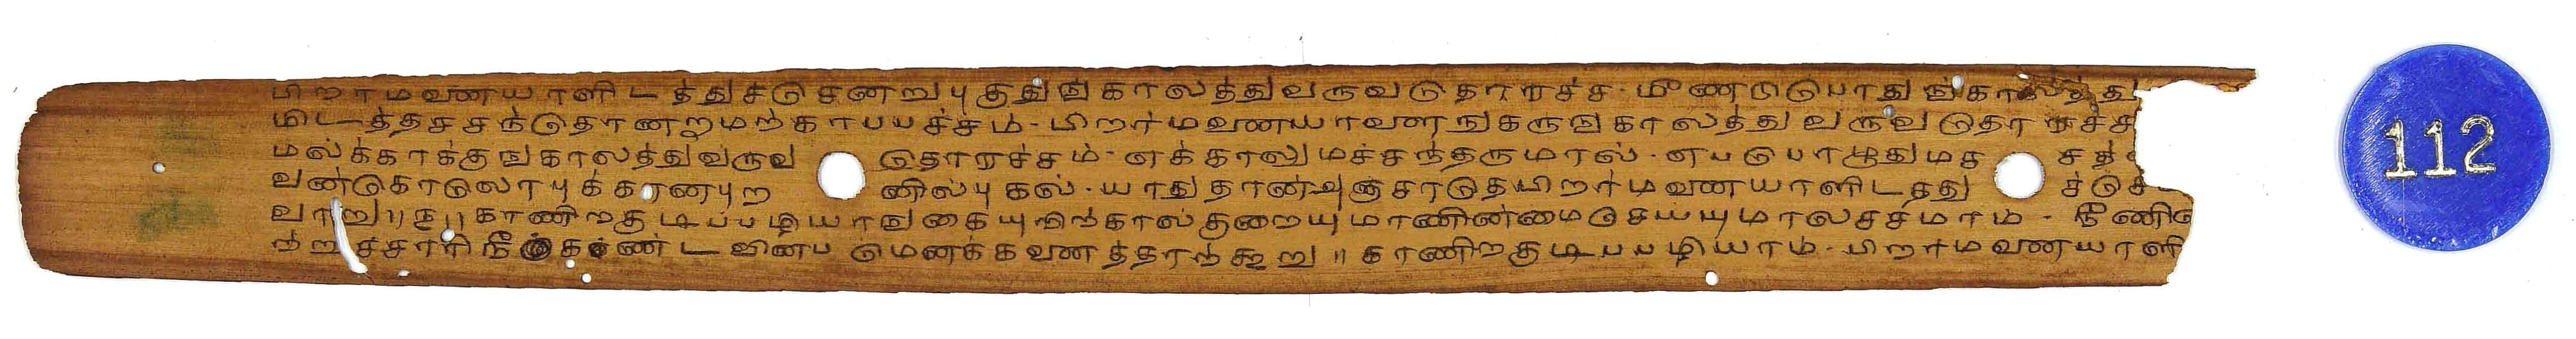 பிறாமவணயாளிடத்துசடுசனறுபுகுதுங்காலத்துவருவடுதாரச்ச - மீணடுடுபாதுங்கா லத்து 112
மிடத்தசசந்டுதானறுமற்காபயச்சம் - பிறர்மவணயாவளநுகருங்காலத்து வருவடுதா ரச்ச
மல்க்காக்குங்காலத்துவருவ டுதாரச்சம் - எக்காலுமச்சந்தருமரல் - எபடுபாழுதுமச சத்
வண்டுகாடுலாபுக்காணபுற னில்புகல் - யாதுதான்அஞ்சாடுதபிறர்மவணயாளிடதது ச்டுச
வாறு॥உ॥காணிறகுடிப்பழியாங்கையுறிற்கால்குறையுமாணின்மைடுசய்யுமாலசசமாம் - நீணி
ந்றுச்சாரிநீடுகாண்டவின்ப டுமனக்கவணத்தாற்கூறு॥காணிறகுடிபபழியாம் - பிறர்மவணயாளி